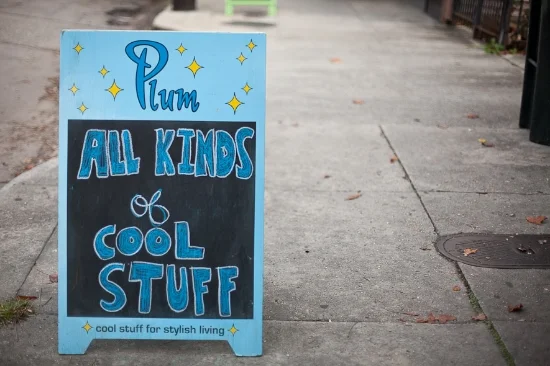 Plum
ALL KINDS
of
COOL
STUFF
cool stuff for stylish living